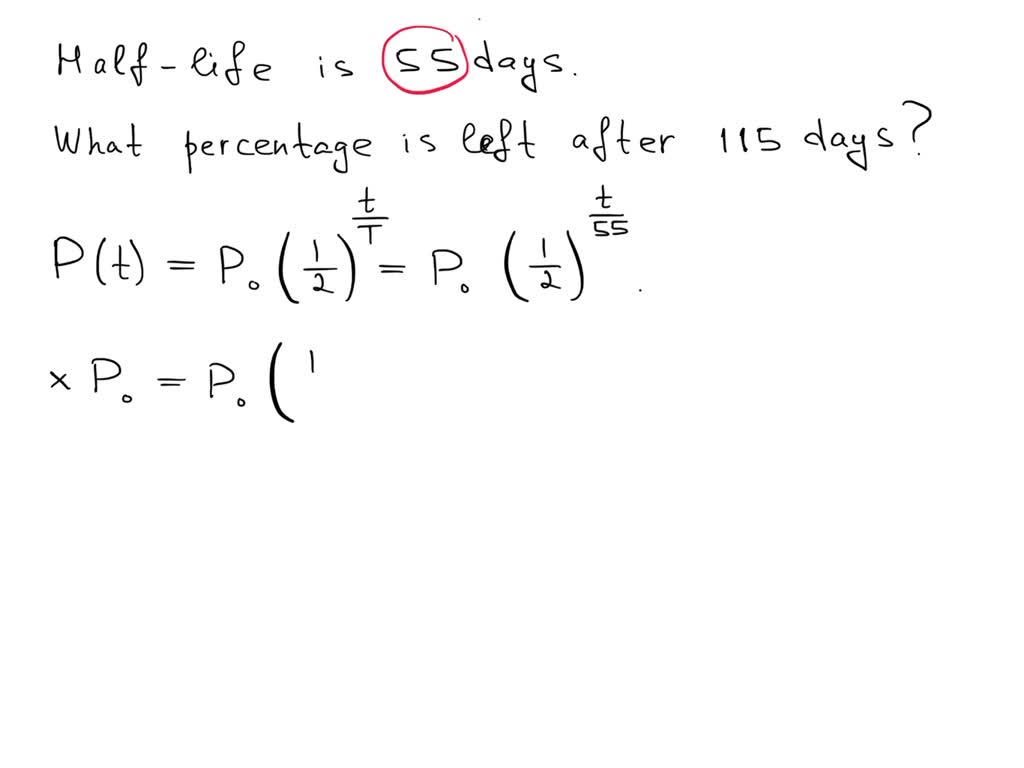 Half-life is 55 days.
What percentage is left after 115 days?
P(t) = P₀ (1/2)^(t/T) = P₀ (1/2)^(t/55)
x P₀ = P₀ ( 1